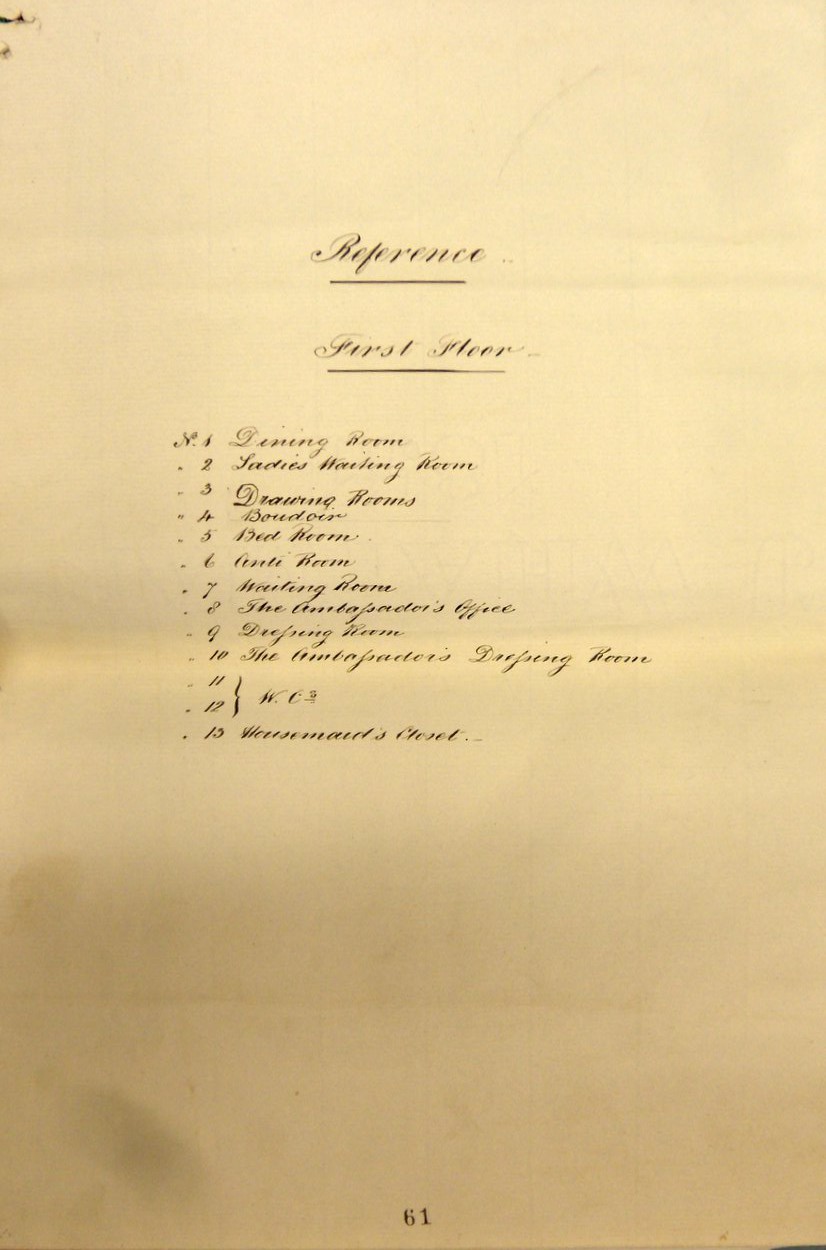 Reference
First Floor
No. 1 Dining Room
" 2 Ladies Waiting Room
" 3 Drawing Rooms
" 4 Boudoir
" 5 Bed Room
" 6 Anti Room
" 7 Waiting Room
" 8 The Ambaſsador's Office
" 9 Dreſsing Room
" 10 The Ambaſsador's Dreſsing Room
" 11
" 12 } W. Cs
" 13 Housemaid's Closet.
61